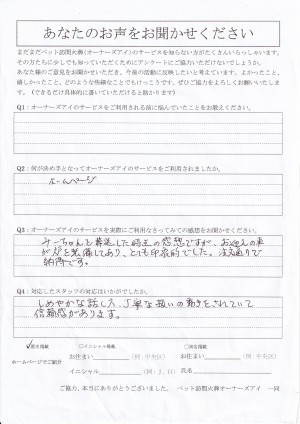 あなたのお声をお聞かせください
まだまだペット訪問火葬(オーナーズアイ)のサービスを知らない方がたくさんいらっしゃいます。
その方たちに少しでも知っていただくためにアンケートにご協力いただけないでしょうか。
あなた様のご意見をお聞かせいただき、今後の活動に反映したいと考えています。よかったこと、
嬉しかったこと、どのような些細なことでもけっこうです。ぜひご協力をよろしくお願いいたしま
す。(できるだけ具体的に書いていただけると助かります)
Q1:オーナーズアイのサービスをご利用される前に悩んでいたことをお教えください。
Q2:何が決め手となってオーナーズアイのサービスをご利用されましたか。
ホームページ
Q3:オーナーズアイのサービスを実際にご利用なさってみての感想をお聞かせください。
みーちゃんと
感想ですが、お迎えの車
とても印象的でした。
納得です。
Q4:対応したスタッフの対応はいかがでしたか。
しめやかな話し方、丁寧な扱いの動きをされていて
信頼感があります。
□イニシャル掲載
ホームページでご紹介
お住まい (例:中央区)
お住まい (例:中央区)
イニシャル (例:J.H)
氏名
ご協力、本当にありがとうございました。 ペット訪問火葬オーナーズアイ 一同